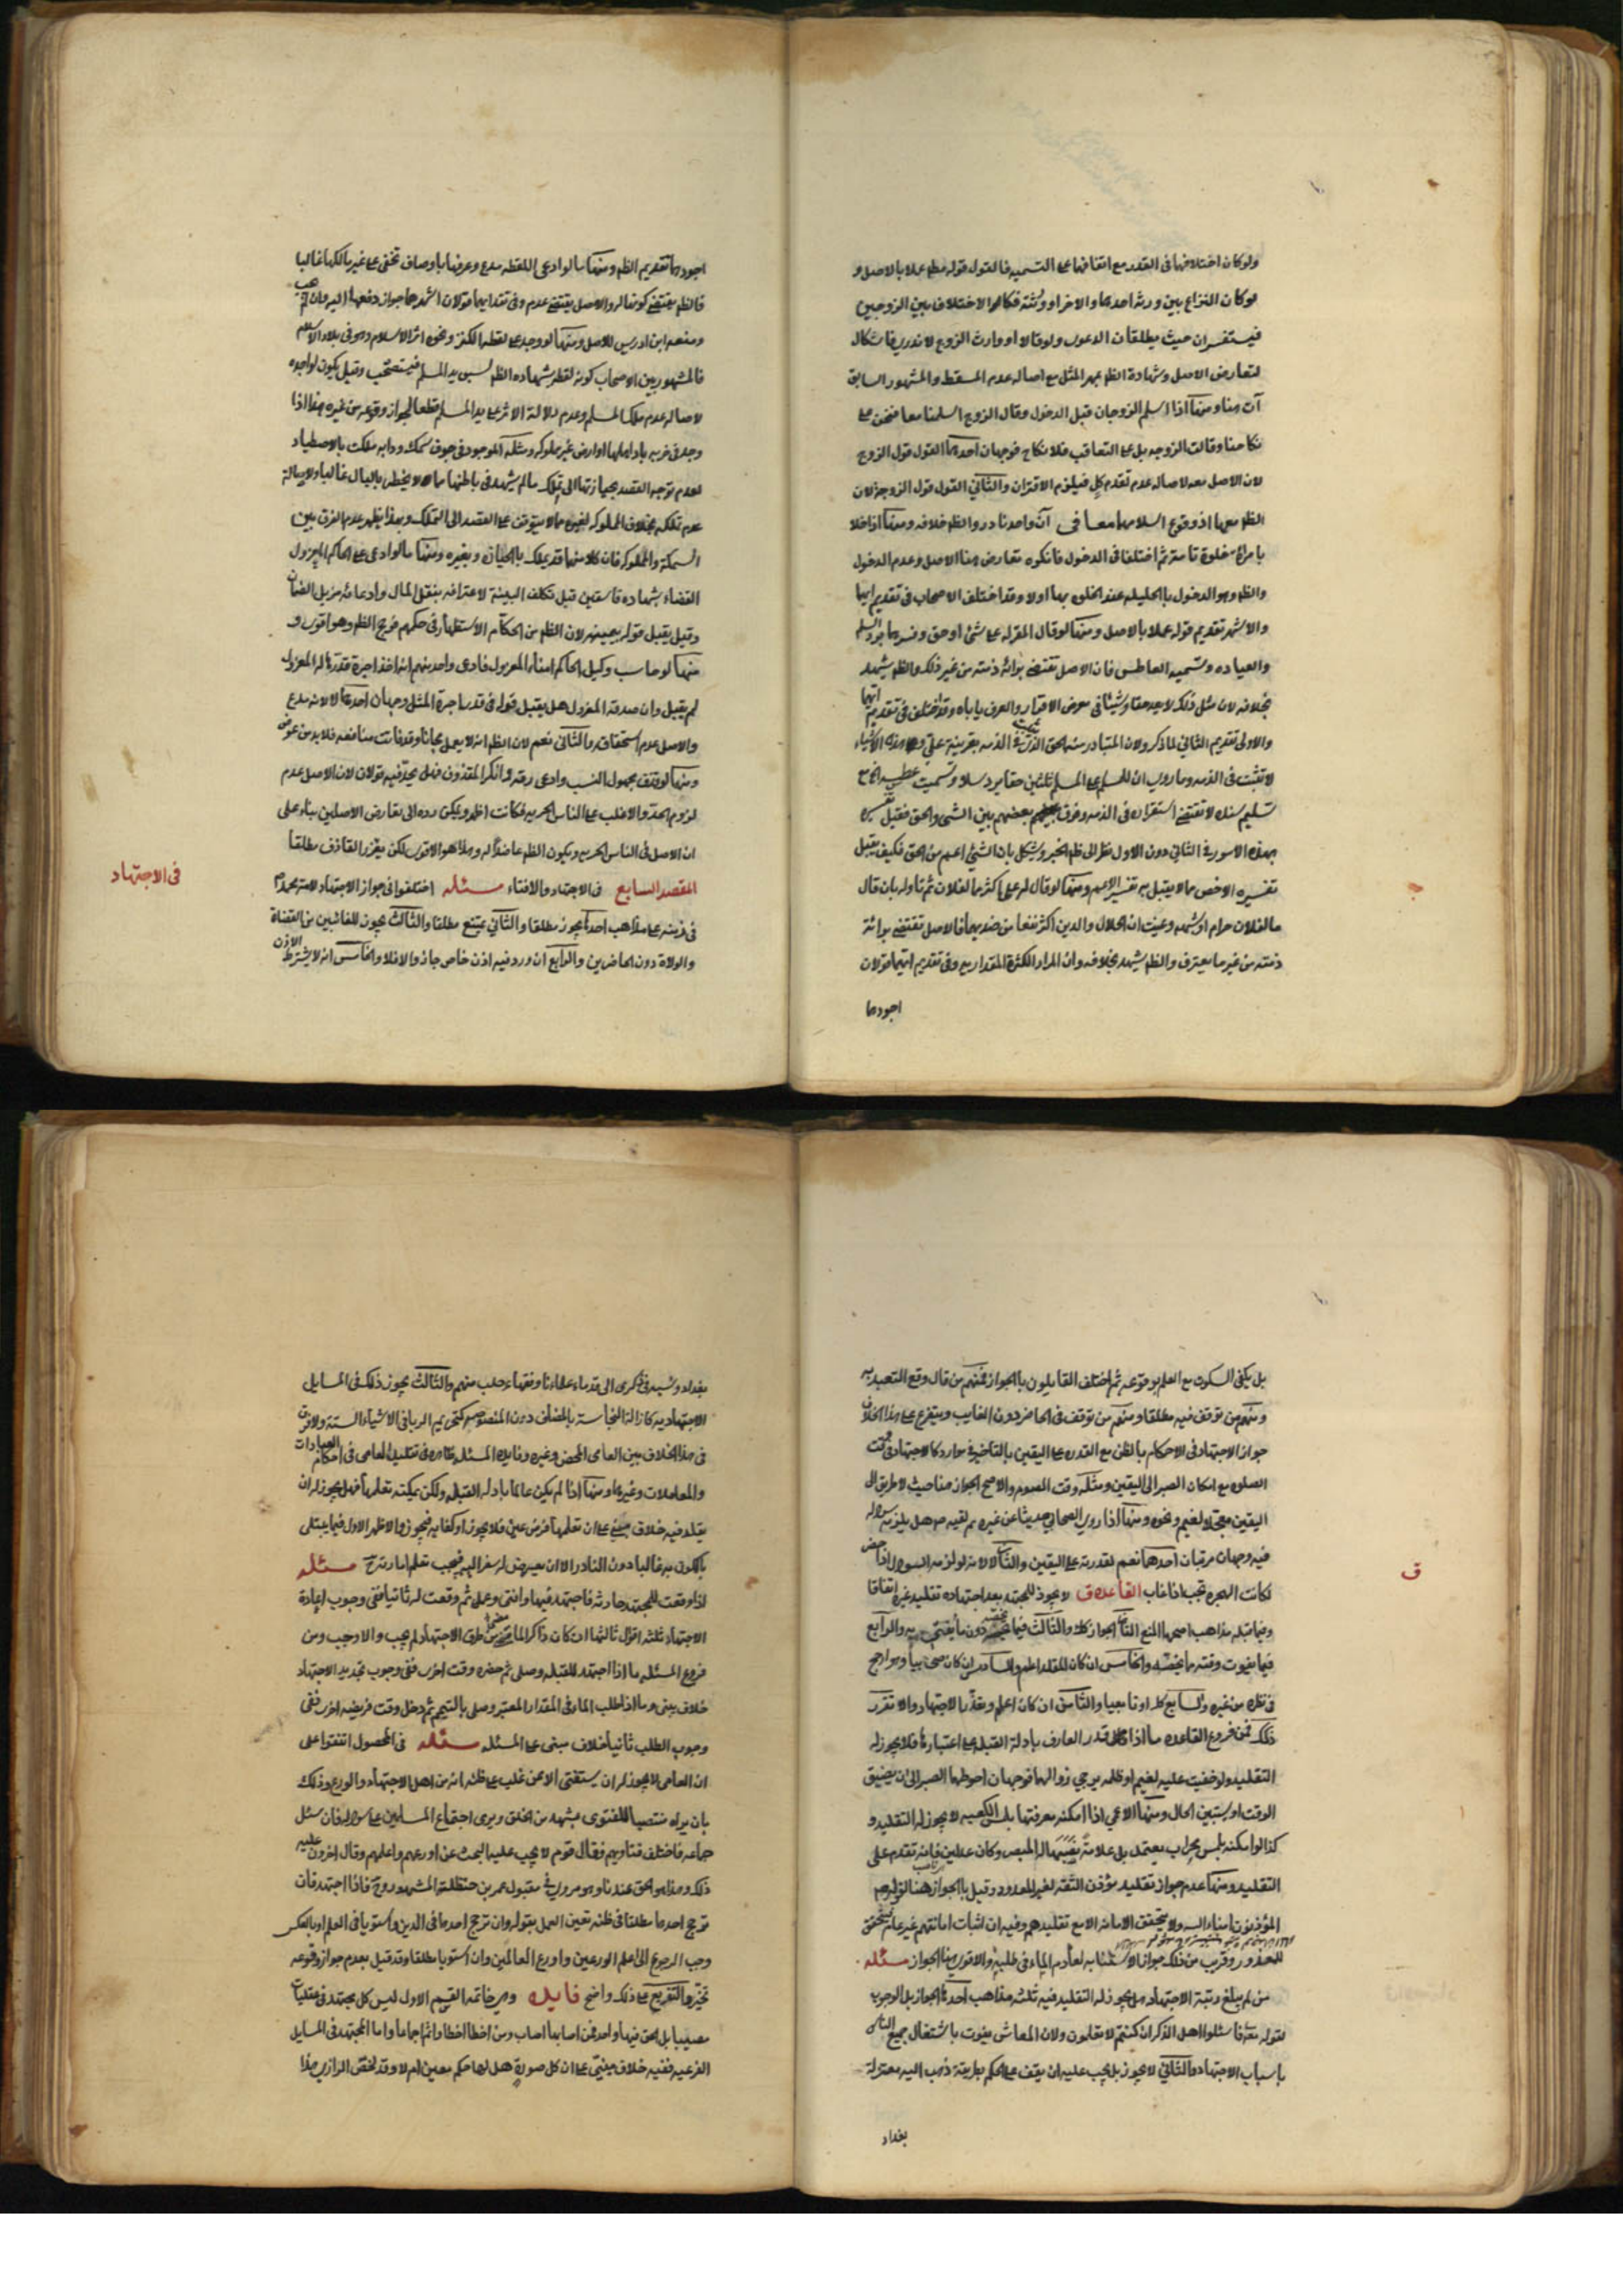 ولو كان اختلافهما فى القدر مع اتفاقهما على التسميه فالقول قوله مطم عملا بالاصل و
لو كان النزاع بين ورثة احدهما والاخر او ورثته فكالاختلاف بين الزوجين
فيستفسران حيث يطلقان الدعوى ولو قالا او وارث الزوج لا ندرى فاشكال
لتعارض الاصل وشهادة الظم بمهر المثل مع اصاله عدم المسقط والمشهور السابق
آت هنا ومنها اذا اسلم الزوجان قبل الدخول وقال الزوج اسلمنا معا فنحن على
نكاحنا وقالت الزوجه بل على التعاقب فلا نكاح فوجهان احدهما القول قول الزوج
لان الاصل معه لاصاله عدم تقدم كل فيلزم الاقتران والثانى القول قول الزوجة لان
الظم معها اذ وقوع اسلامهما معا فى آن واحد نادر والظم خلافه ومنها اذا خلا
بامرأة خلوة تامة ثم اختلفا فى الدخول فانكره تعارض هنا الاصل وعدم الدخول
والظم وهو الدخول بالحليله عند الخلوه بها اولا وقد اختلف الاصحاب فى تقديم ايهما
والاشهر تقديم قوله عملا بالاصل ومنها لو قال المقر له على شئ او حق وفسرهما برد السلم
والعياده وتسميه العاطس فان الاصل تقتضى برائة ذمته من غير ذلك والظم يشهد
بخلافه لان مثل ذلك لا يعد حقا وشيئا فى معرض الاقرار والعرف ياباه وقد اختلف فى تقديم ايهما
والاولى تقديم الثانى لما ذكر ولان المتبادر منه الحق الذى يثبت فى الذمه بقرينة على وهذه الاشياء
لا تثبت فى الذمه وما روى ان للمسلم على المسلم ثلثين حقا يرد سلامه وتسميت عطسه الخ مع
تسليم سنده لا تقتضى استقراره فى الذمه وفرق بعضهم بين الشئ والحق فقبل تفسيره
بهذه الامور فى الثانى دون الاول نظرا الى ظم الخبر ويشكل بان الشئ اعم من الحق فكيف يقبل
تفسيره الاخص ما لا يقبل به تفسير الاعم ومنها لو قال له على اكثر مما لفلان ثم تاوله بان قال
مال فلان حرام او شبهه وعنيت ان الحلال والدين اكثر نفعا من ضديهما فالاصل تقتضى برائة
ذمته من غير ما يعترف والظم يشهد بخلافه وان المراد الكثرة المقداريه وفى تقديم ايهما قولان
اجودهما
اجودهما تقديم الظم ومنها ما لو ادعى اللقطه مدع وعرفها باوصاف تخفى على غير مالكها غالبا
فالظم يقتضى كونها له والاصل يقتضى عدمه وفى تقديم ايهما قولان اشهرهما جواز دفعها اليه
ومنعه ابن ادريس للاصل ومنها لو وجد على لقطه الكنز ونحوه اثر الاسلام وهو فى بلاد الاسلام
فالمشهور بين الاصحاب كونه لقطه بشهاده الظم لسبق يد المسلم فيستصحب وقيل يكون لواجده
لاصاله عدم ملك المسلم وعدم دلالة الاثر على يد المسلم قطعا لجواز وقوعه من غيره هذا اذا
وجد فى خربه باد اهلها او ارض غير مملوكه ومثله الموجود فى جوف سمكه ودابه ملكت بالاصطياد
لعدم توجه القصد بحيازتها الى تملك ما لم يشهد فى باطنها مما لا يخطر بالبال غالبا ولاصالة
عدم تملكه بخلاف المملوكه لغيره مما لا يتوقف على القصد الى التملك وبهذا يظهر عدم الفرق بين
السمكة والمملوكه فان كلا منها قد يملك بالحيازه وبغيره ومنها ما لو ادعى على الحاكم المعزول
القضاء بشهاده فاسقين قيل تكلف البينة لاعترافه بنقل المال وادعائه مزيل الضمان
وقيل يقبل قوله بيمينه لان الظم من الحكام الاستظهار فى حكمهم فرجح الظم وهو اقوى و
منها لو حاسب وكيل الحاكم امناء المعزول فادعى واحد منهم انه اخذ اجرة قدرها له المعزول
لم يقبل وان صدقه المعزول هل يقبل قوله فى قدر اجرة المثل وجهان احدهما لا لانه مدع
والاصل عدم استحقاقه والثانى نعم لان الظم انه لا يعمل مجانا وقد فاتت منافعه فلا بد من عوض
ومنها لو قذف مجهول النسب وادعى رقه وانكر المقذوف فهل يحد فيه قولان لان الاصل عدم
لزوم الحد والاغلب على الناس الحريه فكانت اظهر ويمكن رده الى تعارض الاصلين بناء على
ان الاصل فى الناس الحريه ويكون الظم عاضدا له وهذا هو الاقوى لكن يعزر القاذف مطلقا
المقصد السابع فى الاجتهاد والافتاء مسئله اختلفوا فى جواز الاجتهاد لامة محمد
فى زمنه على مذاهب احدها يجوز مطلقا والثانى يمتنع مطلقا والثالث يجوز للغائبين من القضاة
والولاة دون الحاضرين والرابع ان ورد فيه اذن خاص جاز والا فلا والخامس انه لا يشترط الاذن
فى الاجتهاد
بل يكفى السكوت مع العلم بوقوعه ثم اختلف القايلون بالجواز فمنهم من قال وقع التعبد به
ومنهم من توقف فيه مطلقا ومنهم من توقف فى الحاضر دون الغايب ويتفرع على هذا الخلاف
جواز الاجتهاد فى الاحكام بالظن مع القدره على اليقين بالتاخير فى موارد كالاجتهاد فى وقت
الصلوه مع امكان الصبر الى اليقين ومثله وقت الصوم والاصح الجواز هنا حيث لا طريق الى
اليقين معجلا لغيم ونحوه ومنها اذا روى الصحابى حديثا عن غيره ثم لقيه هل يلزمه سواله
فيه وجهان مرتبان احدهما نعم لقدرته على اليقين والثانى لا لانه لو لزمه السوال اذا حضر
لكانت الهجره تجب اذا غاب القاعده ق لا يجوز للمجتهد بعد اجتهاده تقليد غيره اتفاقا
وفيما قبله مذاهب اصحها المنع الثانى الجواز كك والثالث فيما يخصه دون ما يفتى به والرابع
فيما يفوت وقته مما يخصه والخامس ان كان المقلد اعلم والسادس ان كان صحابيا وهو ارجح
فى نظره من غيره والسابع كك او تابعيا والثامن ان كان اعلم وتعذر الاجتهاد والا تقرر
ذلك فمن فروع القاعده ما اذا قدر العارف بادلة القبله على اعتبارها فلا يجوز له
التقليد ولو خفيت عليه لغيم او ظلمه يرجى زوالهما فوجهان احوطهما الصبر الى ان يضيق
الوقت او يستبين الحال ومنها الاعمى اذا امكنه معرفتها بلمس الكعبه لا يجوز له التقليد و
كذا لو امكنه بلمس محراب يعتمد بل علامة نصبها له المبصر وكان عدلين فانه تقدم على
التقليد ومنها عدم جواز تقليد مؤذن الثقه لغير المعذور وقيل بالجواز هنا لقولهم
المؤذنون امناء الله ولا يتحقق الامانه الا مع تقليدهم وفيه ان اثبات امانتهم غير عام لتحققه
للمعذور وقريب من ذلك جواز الاستنابه لعادم الماء فى طلبه والاقوى هنا الجواز مسئله
من لم يبلغ رتبة الاجتهاد هل يجوز له التقليد فيه ثلثه مذاهب احدها الجواز بل الوجوب
لقوله تعه فاسئلوا اهل الذكر ان كنتم لا تعلمون ولان المعاش يفوت باشتغال جميع الناس
باسباب الاجتهاد والثانى لا يجوز بل يجب عليه ان يقف على الحكم بطريقه ذهب اليه معتزلة
بغداد
ق
بغداد وشيخه فى ذكرى الى قدماء علمائنا وفقهاء حلب منهم والثالث يجوز ذلك فى المسايل
الاجتهاديه كازالة النجاسة بالمضاف دون المنصوصه كتحريم الربا فى الاشياء الستة ولا فرق
فى هذا الخلاف بين العامى المحض وغيره وفايده المسئله ظاهره فى تقليد العامى فى احكام العبادات
والمعاملات وغيرها ومنها اذا لم يكن عالما بادلة القبله ولكن يمكنه تعلمها فهل يجوز له ان
يقلد فيه خلاف مبنى على ان تعلمها فرض عين فلا يجوز او كفايه فيجوز والاظهر الاول فيما يبتلى
بالكون به غالبا دون النادر الا ان يعرض له سفر اليه فيجب تعلم امارته ح مسئله
اذا وقعت للمجتهد حادثه فاجتهد فيها وافتى وعمل ثم وقعت له ثانيا ففى وجوب اعادة
الاجتهاد ثلثه اقوال ثالثها ان كان ذاكرا لما مضى من طرق الاجتهاد لم يجب والا وجب ومن
فروع المسئله ما اذا اجتهد للقبله وصلى ثم حضره وقت اخرى ففى وجوب تجديد الاجتهاد
خلاف يبنى وما اذا طلب الماء فى المقدار المعتبر وصلى بالتيمم ثم دخل وقت فريضه اخرى ففى
وجوب الطلب ثانيا خلاف مبنى على المسئله مسئله فى المحصول اتفقوا على
ان العامى لا يجوز له ان يستفتى الا من غلب على ظنه انه من اهل الاجتهاد والورع وذلك
بان يراه منتصبا للفتوى بمشهد من الخلق ويرى اجتماع المسلمين على سواله فان سئل
جماعه فاختلف فتاويهم فقال قوم لا يجب عليه البحث عن اورعهم واعلمهم وقال اخرون عليه
ذلك وهذا هو الحق عندنا وهو مروى فى مقبول عمر بن حنظلة المشهور وح فاذا اجتهد فان
ترجح احدهما مطلقا فى ظنه تعين العمل بقوله وان ترجح احدهما فى الدين واستويا فى العلم او بالعكس
وجب الرجوع الى اعلم الورعين واورع العالمين وان استويا مطلقا وقد قيل بعدم جواز وقوعه
تخير والتفريع على ذلك واضح فايده وهى خاتمه القسم الاول ليس كل مجتهد فى عقليات
مصيبا بل الحق فيها واحد فمن اصابها اصاب ومن اخطأ اخطأ واثم اجماعا واما المجتهد فى المسايل
الفرعيه ففيه خلاف مبنى على ان كل صورة هل لها حكم معين ام لا وقد لخص الرازى هذا